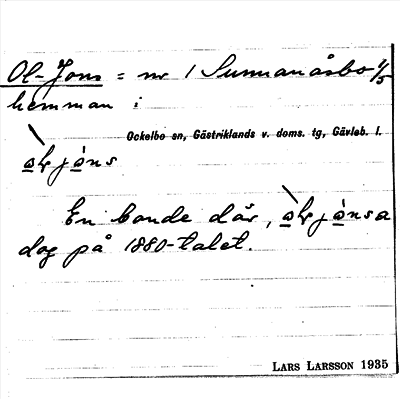 Ol-Jons = nr 1 Sunnanåsbo 4/5
hemman i
Ockelbo sn, Gästriklands v. doms. tg, Gävleb. l.
En bonde där,
dog på 1880-talet.
LARS LARSSON 1935